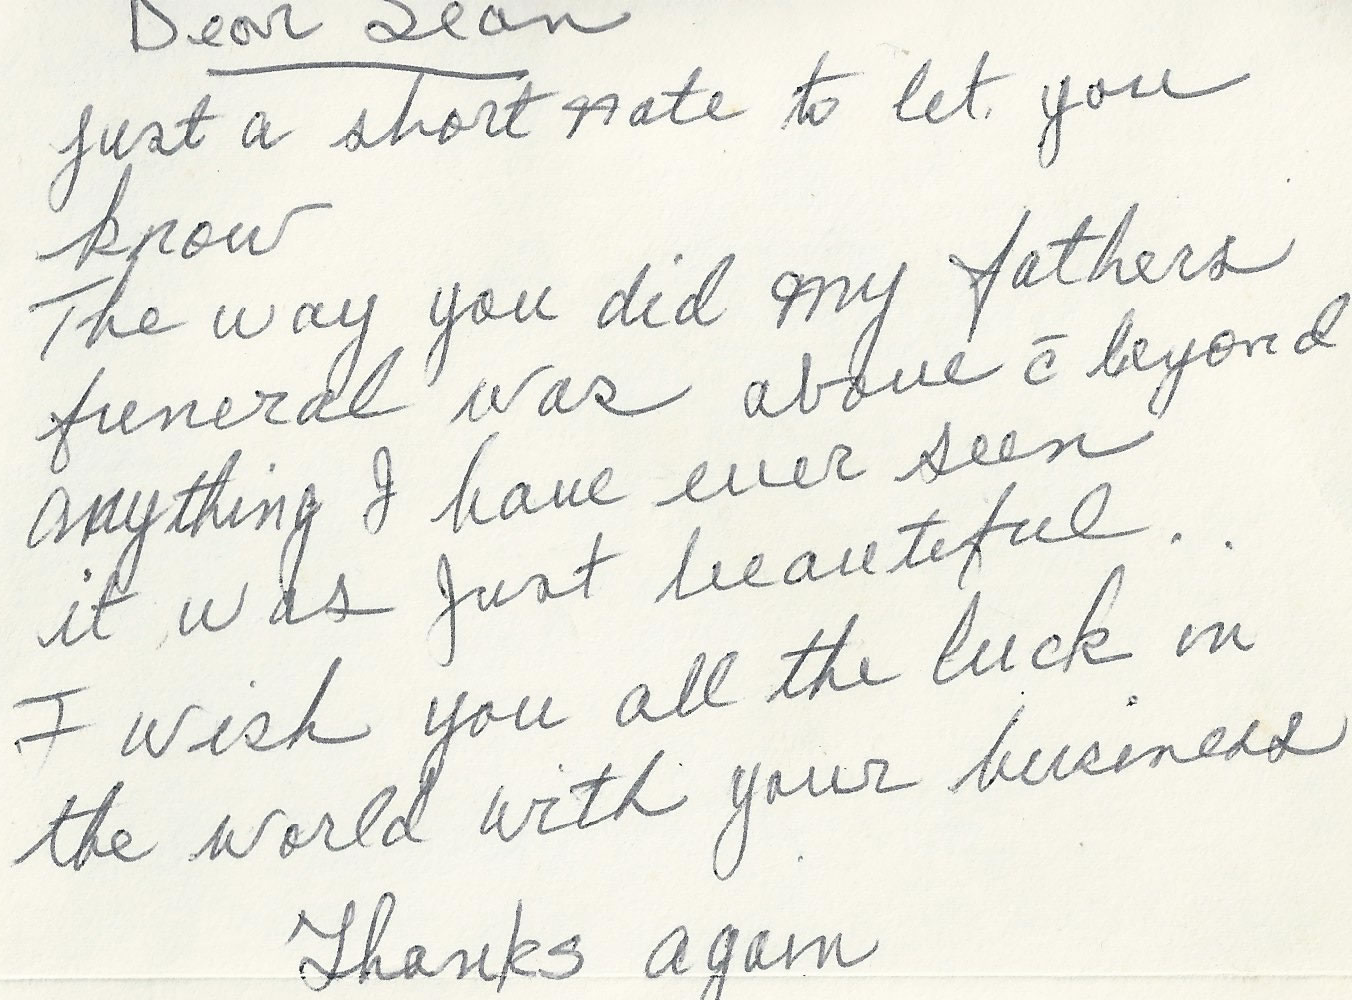 Dear Sean
just a short note to let you
know
The way you did my fathers
funeral was above c̄ beyond
anything I have ever seen
it was Just beautiful..
I wish you all the luck in
the world with your business
Thanks again